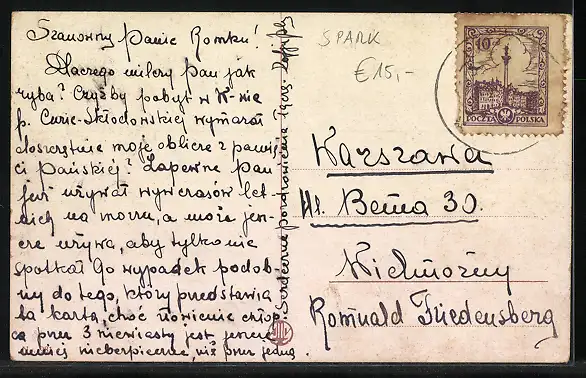 Szanowny Panie Romku!
Dlaczego milczy Pan jak
ryba? Czyżby pobyt w K-nie
p. Curie-Skłodowskiej wymazał
doszczętnie moje oblicze z pamię
ci Pańskiej? Zapewne Pan
już używał wywczasów let
nich na morzu, a może jesz-
cze używa, aby tylko nie
spotkał Go wypadek podob-
ny do tego, który przedstawia
ta karta, choć łowienie chłop
ca przez 3 niewiasty jest
mniej niebezpieczne, niż przez jedną.
Serdeczne pozdrowienia
SPARK
€15,-
10
POCZTA POLSKA
Warszawa
Ul. Bema 30.
Wielmożny
Romuald Friedensberg